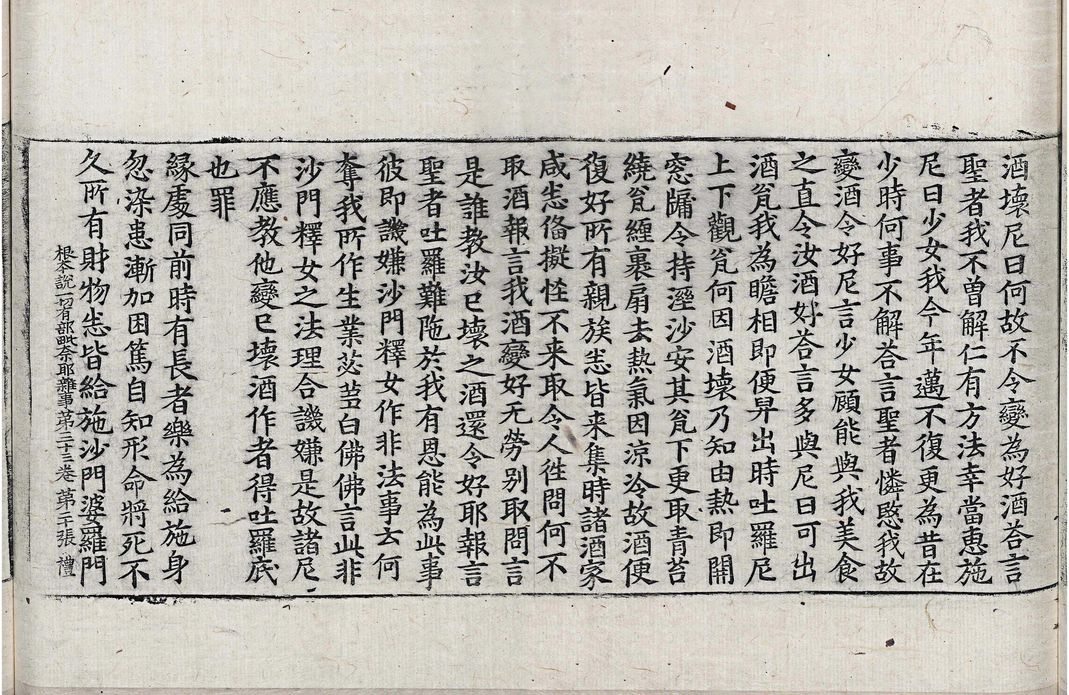 酒壞尼曰何故不令變為好酒荅言
聖者我不曽解仁有方法幸當惠施
尼曰少女我今年邁不復更為昔在
少時何事不解荅言聖者憐愍我故
變酒令好尼言少女顧能與我美食
之直令汝酒好荅言多與尼曰可出
酒瓮我為瞻相即便舁出時吐羅尼
上下觀瓮何因酒壞乃知由熱即開
窓牖令持溼沙安其瓮下更取青苔
繞瓮纏裹扇去熱氣因涼冷故酒便
復好所有親族悉皆来集時諸酒家
咸悉俻擬恠不来取令人徃問何不
取酒報言我酒變好无勞別取問言
是誰教汝已壞之酒還令好耶報言
聖者吐羅難陁於我有恩能為此事
彼即譏嫌沙門釋女作非法事云何
奪我所作生業苾芻白佛佛言此非
沙門釋女之法理合譏嫌是故諸尼
不應教他變已壞酒作者得吐羅底
也罪
緣處同前時有長者樂為給施身
忽染患漸加困篤自知形命將死不
久所有財物悉皆給施沙門婆羅門
根本說一切有部毗奈耶雜事第三十三卷 第二十張 禮